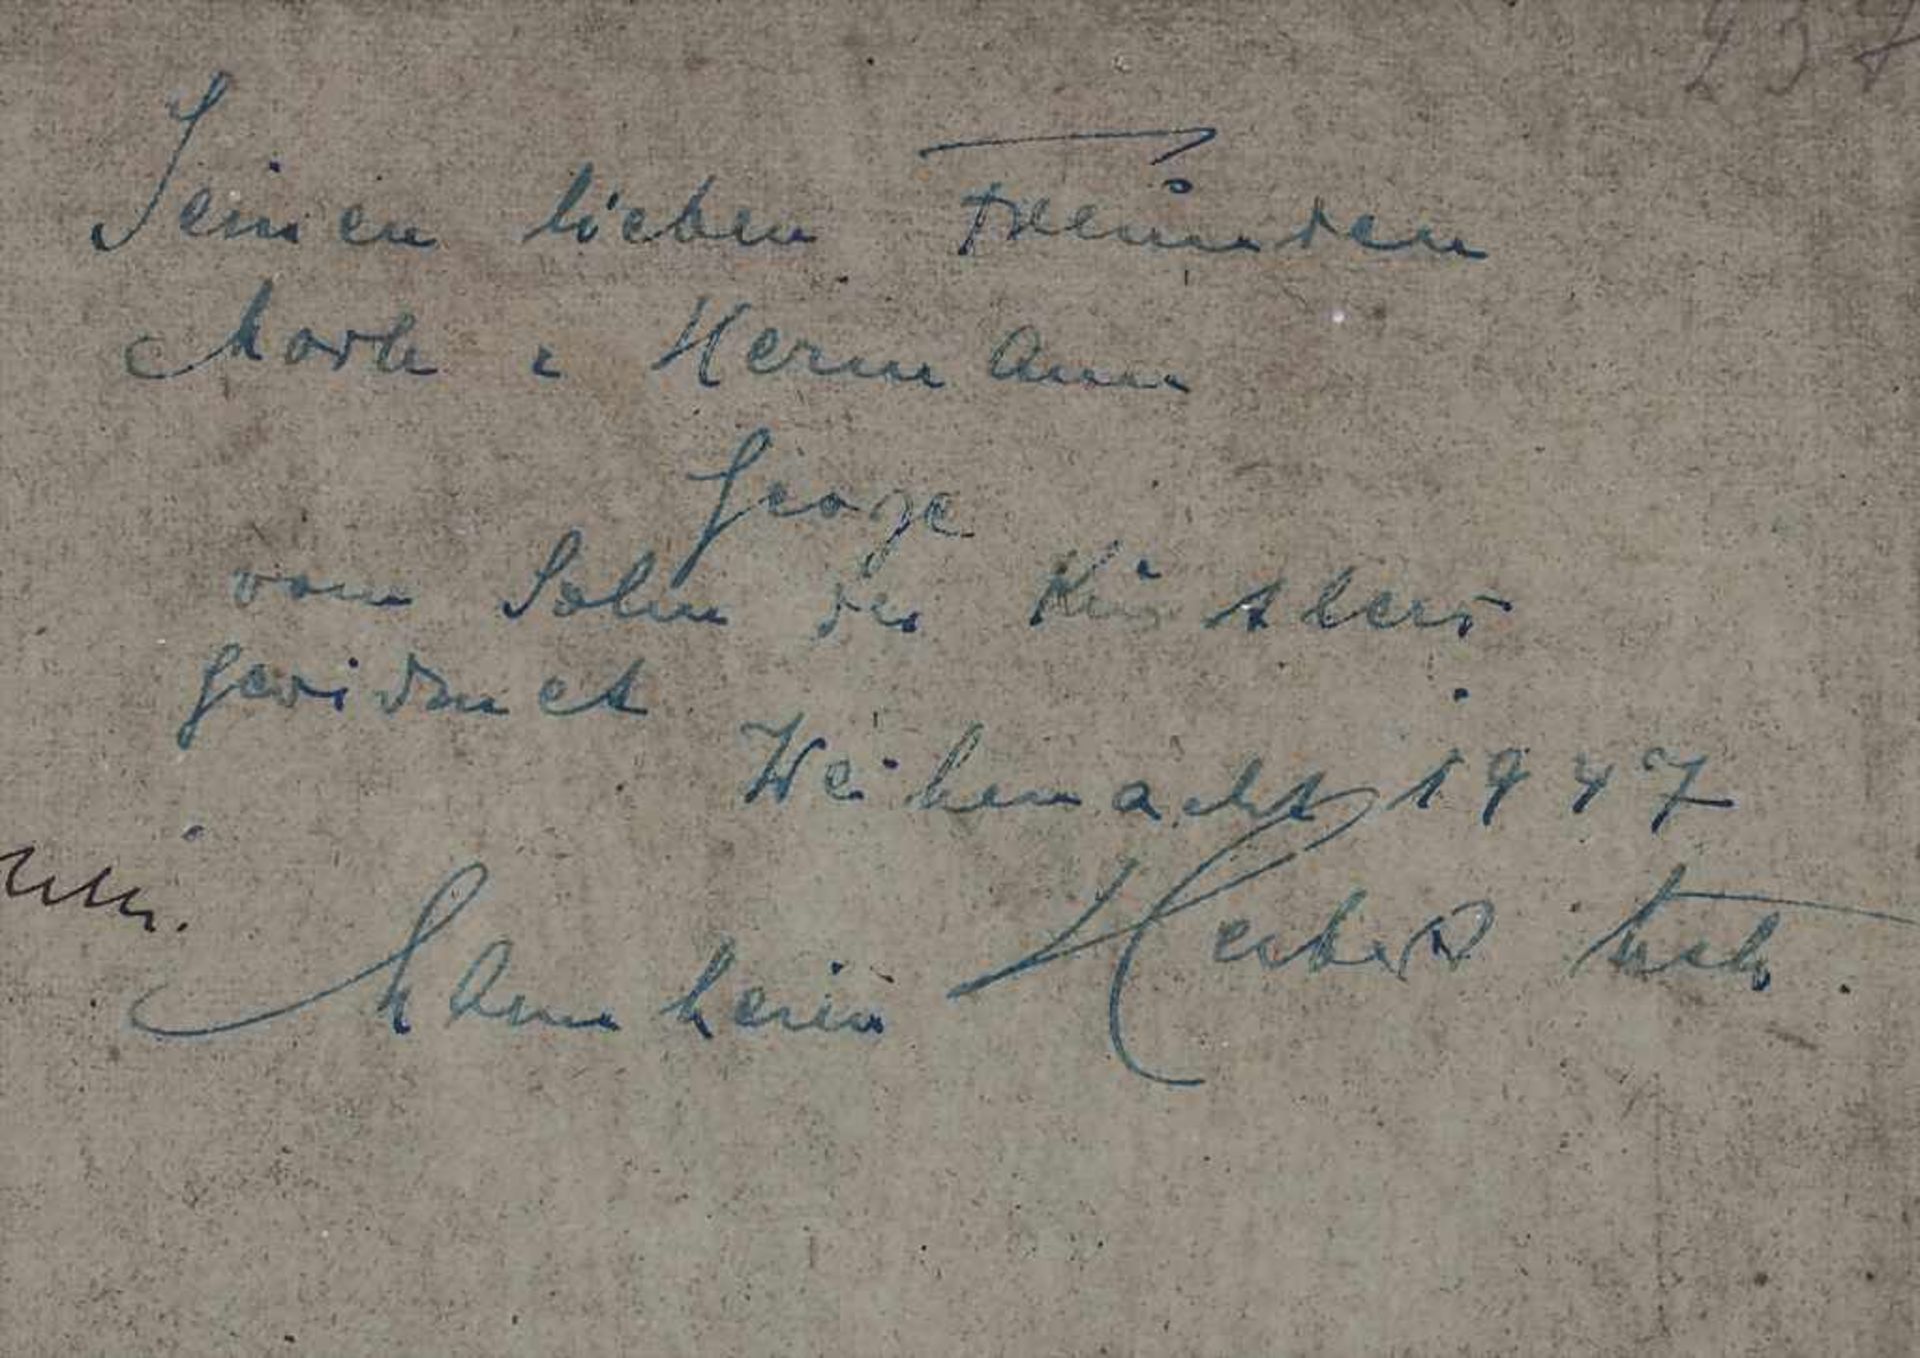 237
Seinen lieben Freunden
& Hermann
George
vom Sohn des Künstlers
gewidmet
Weihnacht 1947
Mannheim Herbert